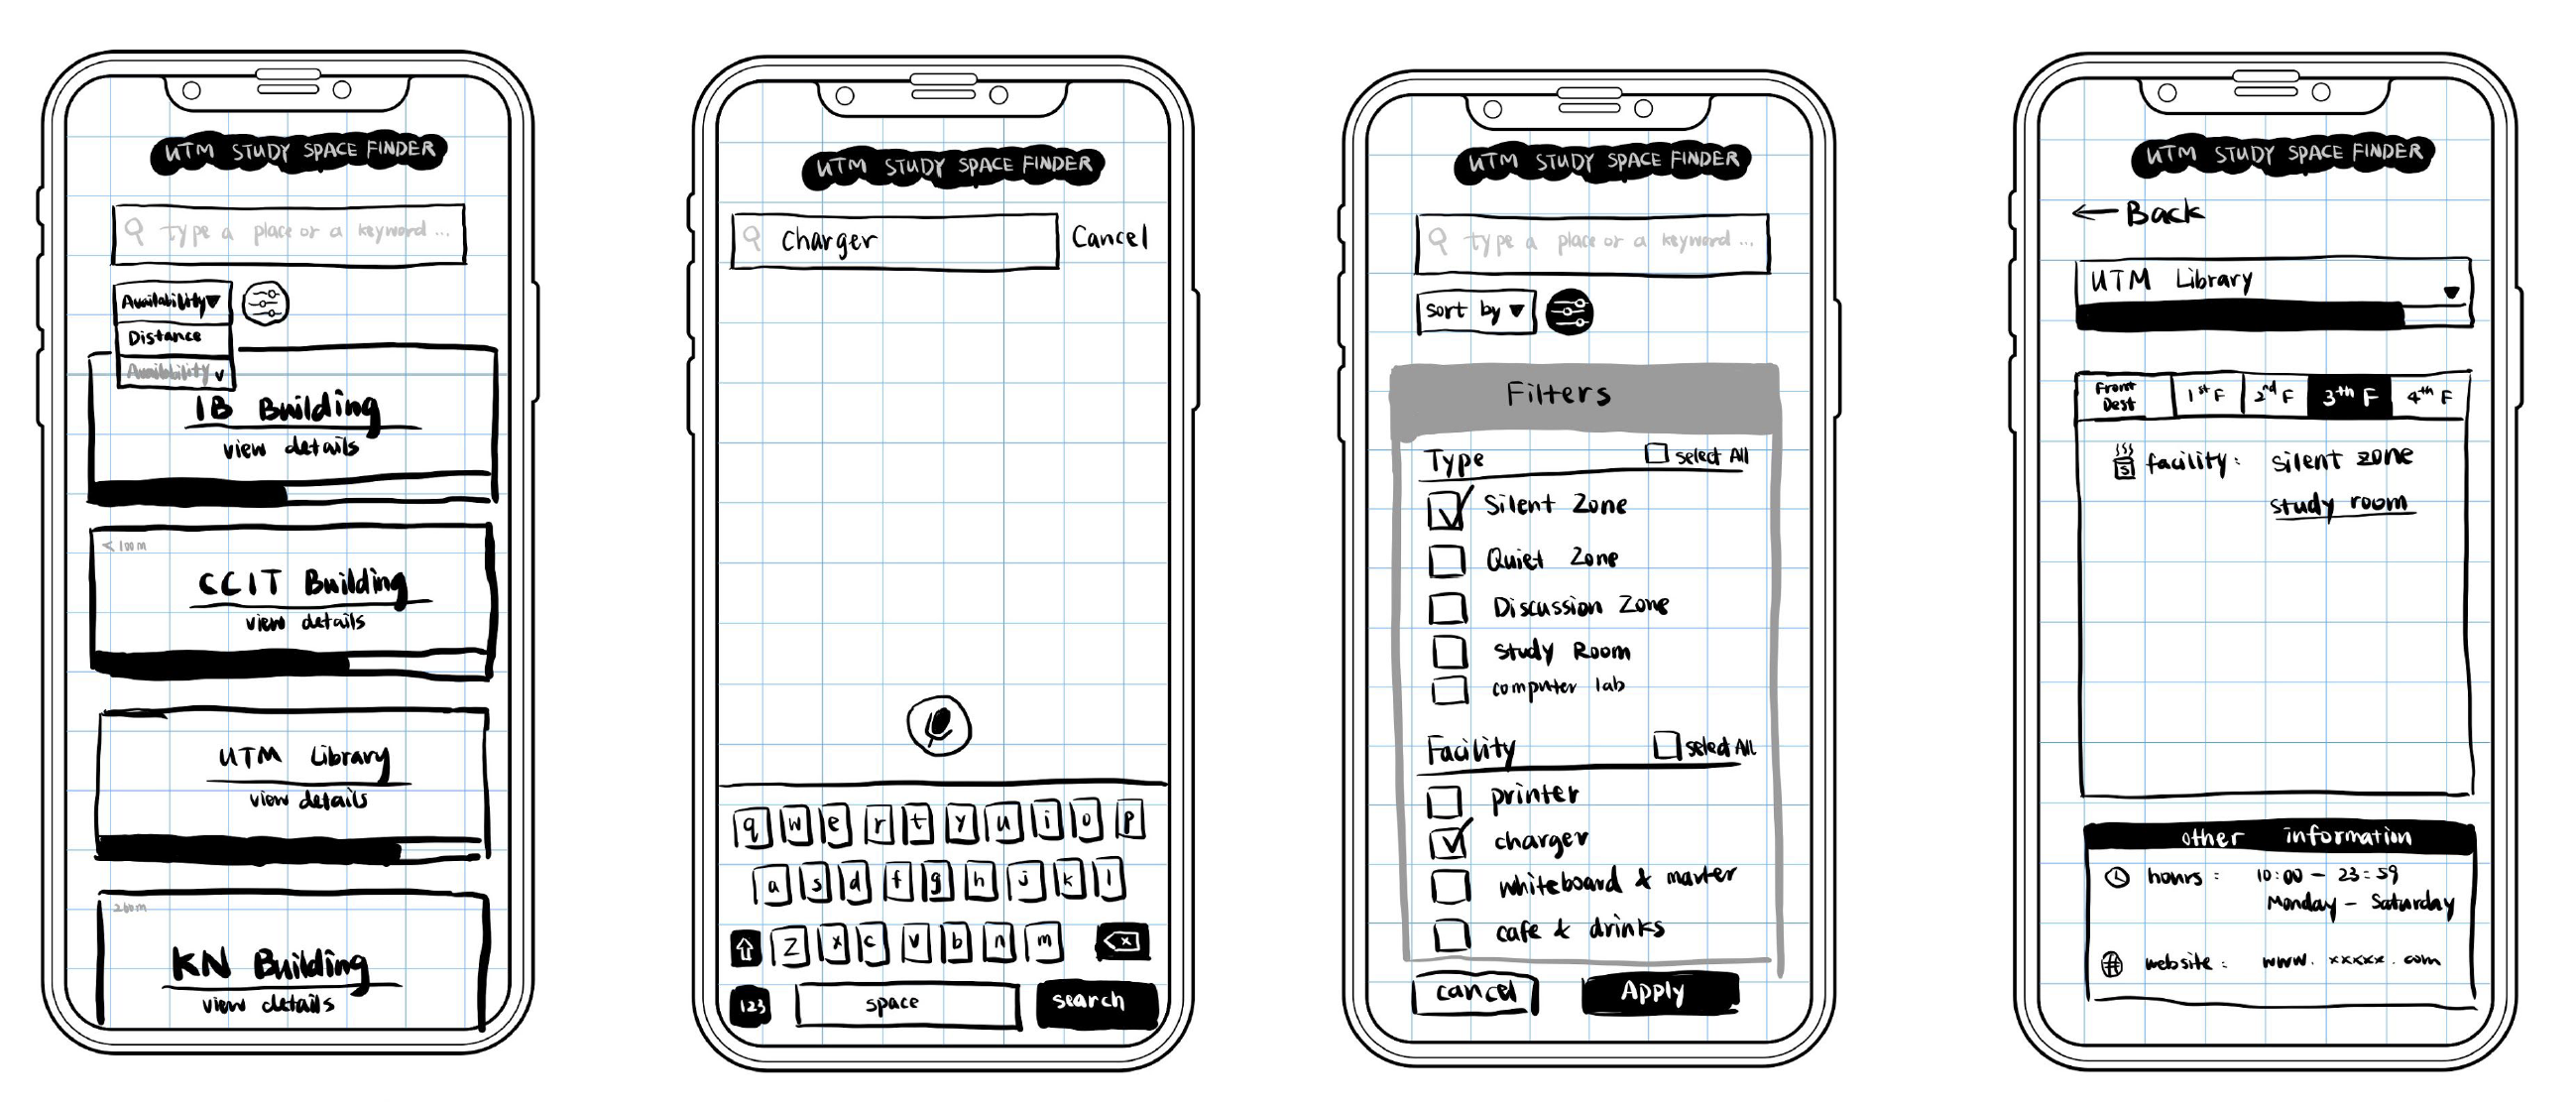 UTM STUDY SPACE FINDER
type a place or a keyword ...
Availability
Distance
Availability
IB Building
view details
<100m
CCIT Building
view details
UTM Library
view details
200m
KN Building
view details
UTM STUDY SPACE FINDER
Charger
Cancel
q w e r t y u i o p
a s d f g h j k l
z x c v b n m
123
space
search
UTM STUDY SPACE FINDER
type a place or a keyword ...
sort by
Filters
Type
select All
Silent Zone
Quiet Zone
Discussion Zone
Study Room
computer lab
Facility
select All
printer
charger
whiteboard & marker
cafe & drinks
cancel
Apply
UTM STUDY SPACE FINDER
← Back
UTM Library
Front Dest
1st F
2nd F
3th F
4th F
facility: silent zone
study room
other information
hours: 10:00 - 23:59
Monday - Saturday
website: www.xxxxx.com